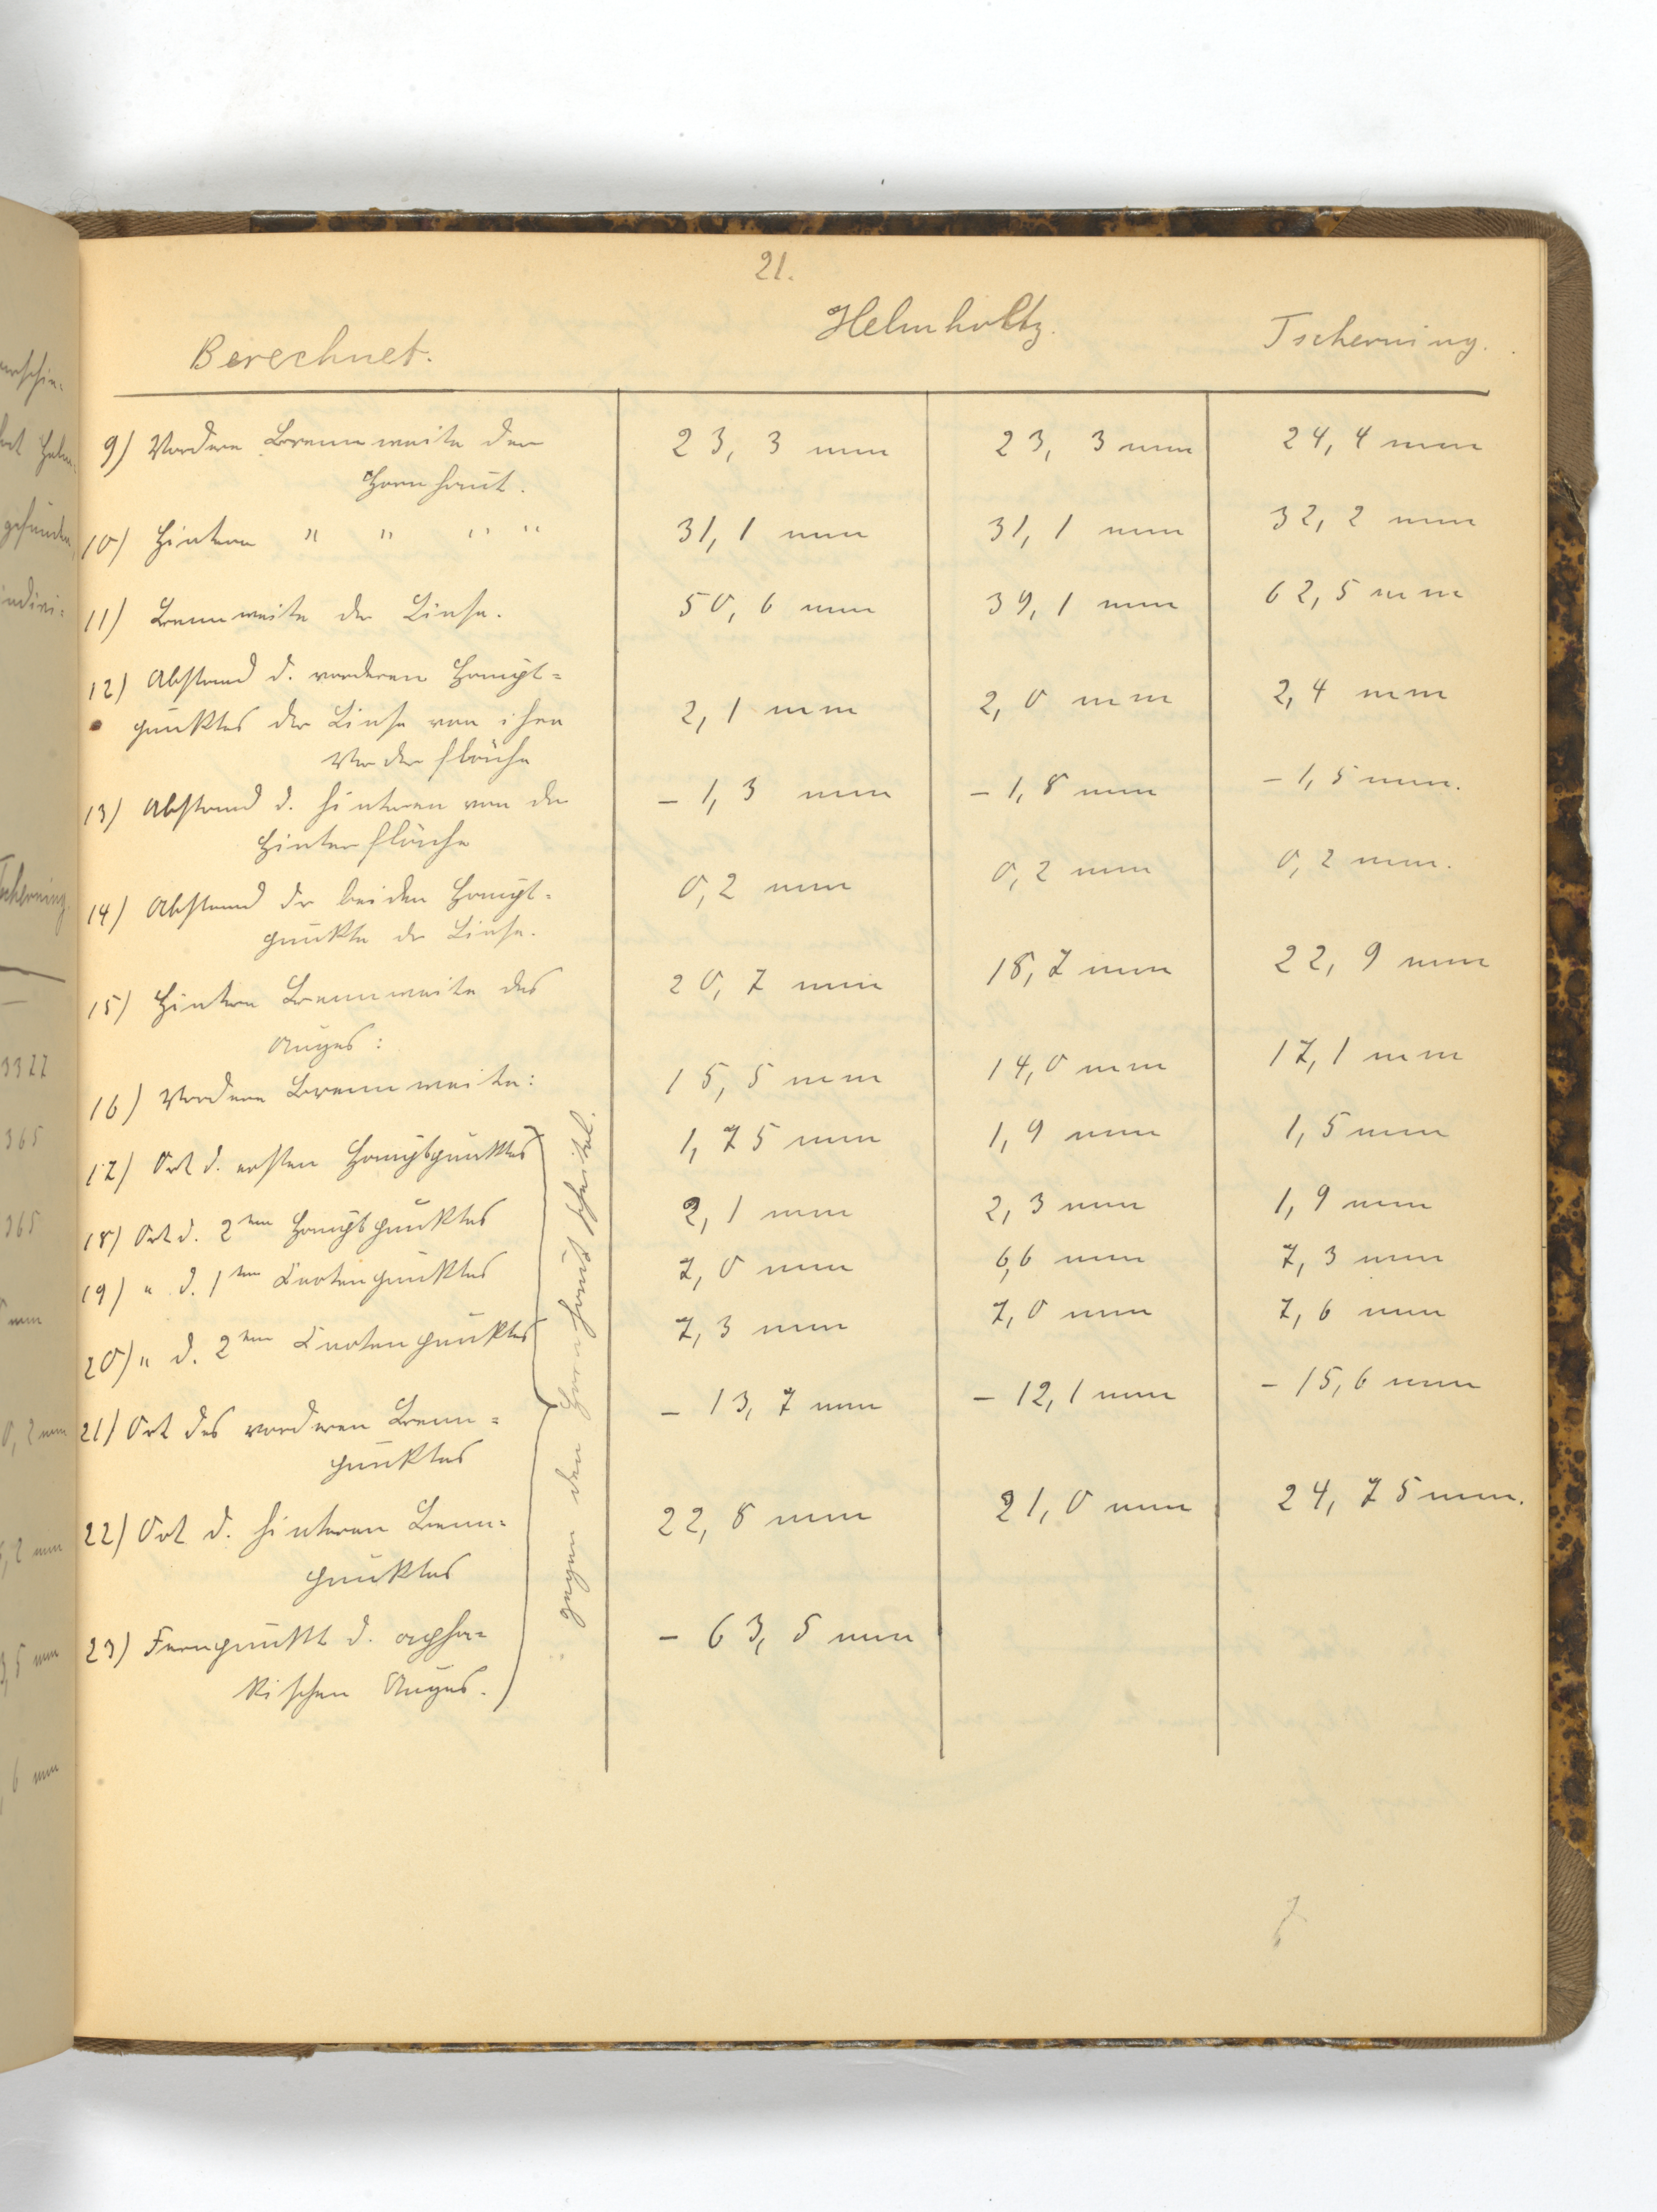 21.
Berechnet. Helmholtz. Tscherning.
9) Vordere Brennweite der 23,3 mm 23,3 mm 24,4 mm
Hornhaut.
10) Hintere " " " " 31,1 mm 31,1 mm 32,2 mm
11) Brennweite der Linse. 50,6 mm 39,1 mm 62,5 mm
12) Abstand d. vorderen Haupt=
punktes der Linse von ihrer 2,1 mm 2,0 mm 2,4 mm
Vorderfläche
13) Abstand d. hinteren von der – 1,3 mm – 1,8 mm – 1,5 mm.
Hinterfläche
14) Abstand der beiden Haupt= 0,2 mm 0,2 mm 0,2 mm.
punkte der Linse.
15) Hintere Brennweite des 20,7 mm 18,7 mm 22,9 mm
Auges:
16) Vordere Brennweite: 15,5 mm 14,0 mm 17,1 mm
17) Ort d. ersten Hauptpunktes 1,75 mm 1,9 mm 1,5 mm
18) Ort d. 2ten Hauptpunktes 2,1 mm 2,3 mm 1,9 mm
19) " d. 1ten Knotenpunktes 7,0 mm 6,6 mm 7,3 mm
20) " d. 2ten Knotenpunktes 7,3 mm 7,0 mm 7,6 mm
21) Ort des vorderen Brenn= – 13,7 mm – 12,1 mm – 15,6 mm
punktes
22) Ort d. hinteren Brenn= 22,8 mm 21,0 mm 24,75 mm.
punktes
23) Fernpunkt d. apha= – 63,5 mm
kischen Auges.
gegen den Hornhautscheitel.
Tscherning
3327
365
365
mm
0,2 mm
,2 mm
3,5 mm
,6 mm